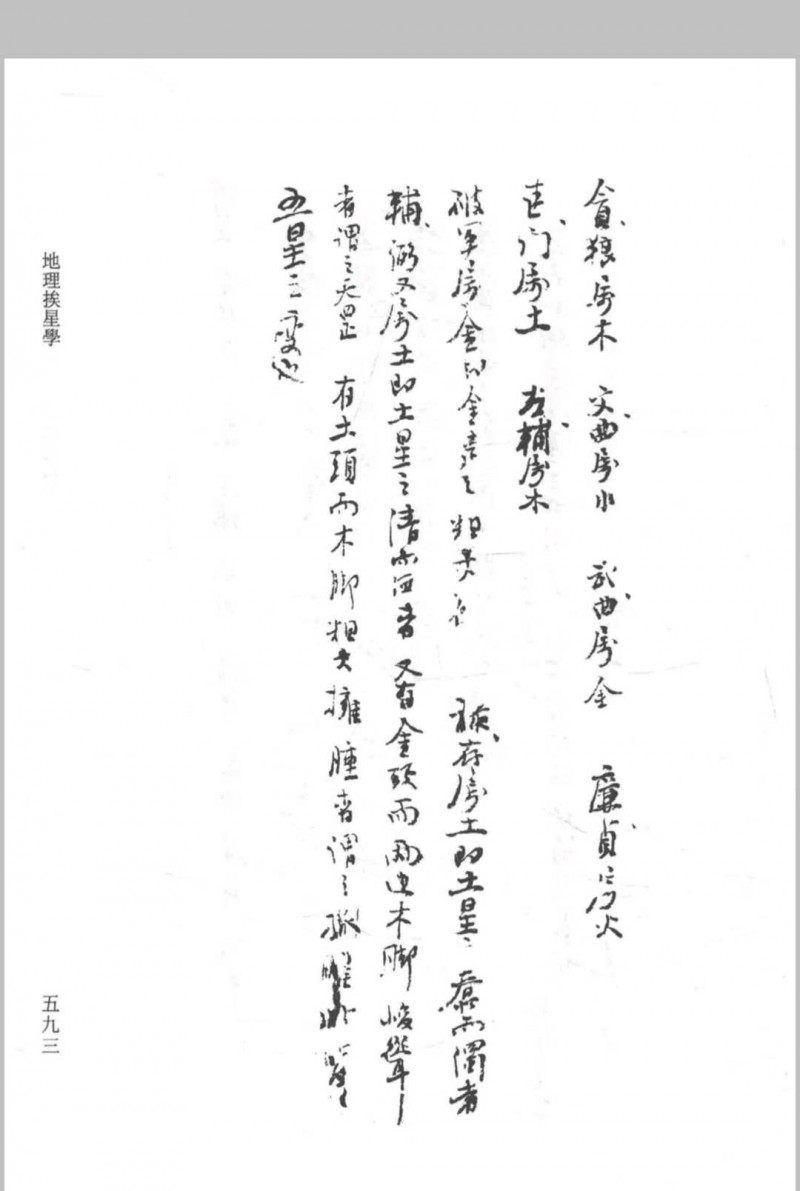 貪狼屬木 文曲屬水 武曲屬金 廉貞屬火
巨门屬土 左輔屬木
破軍屬金即金星之粗大者 祿存屬土即土星之 而濁者
輔弼又屬土即土星之清而 者 又有金頭而兩边木脚峻聳
者謂之天罡 有土頭而木脚粗大擁腫者謂之孤曜此皆
五星之变也
地理挨星學
五九三